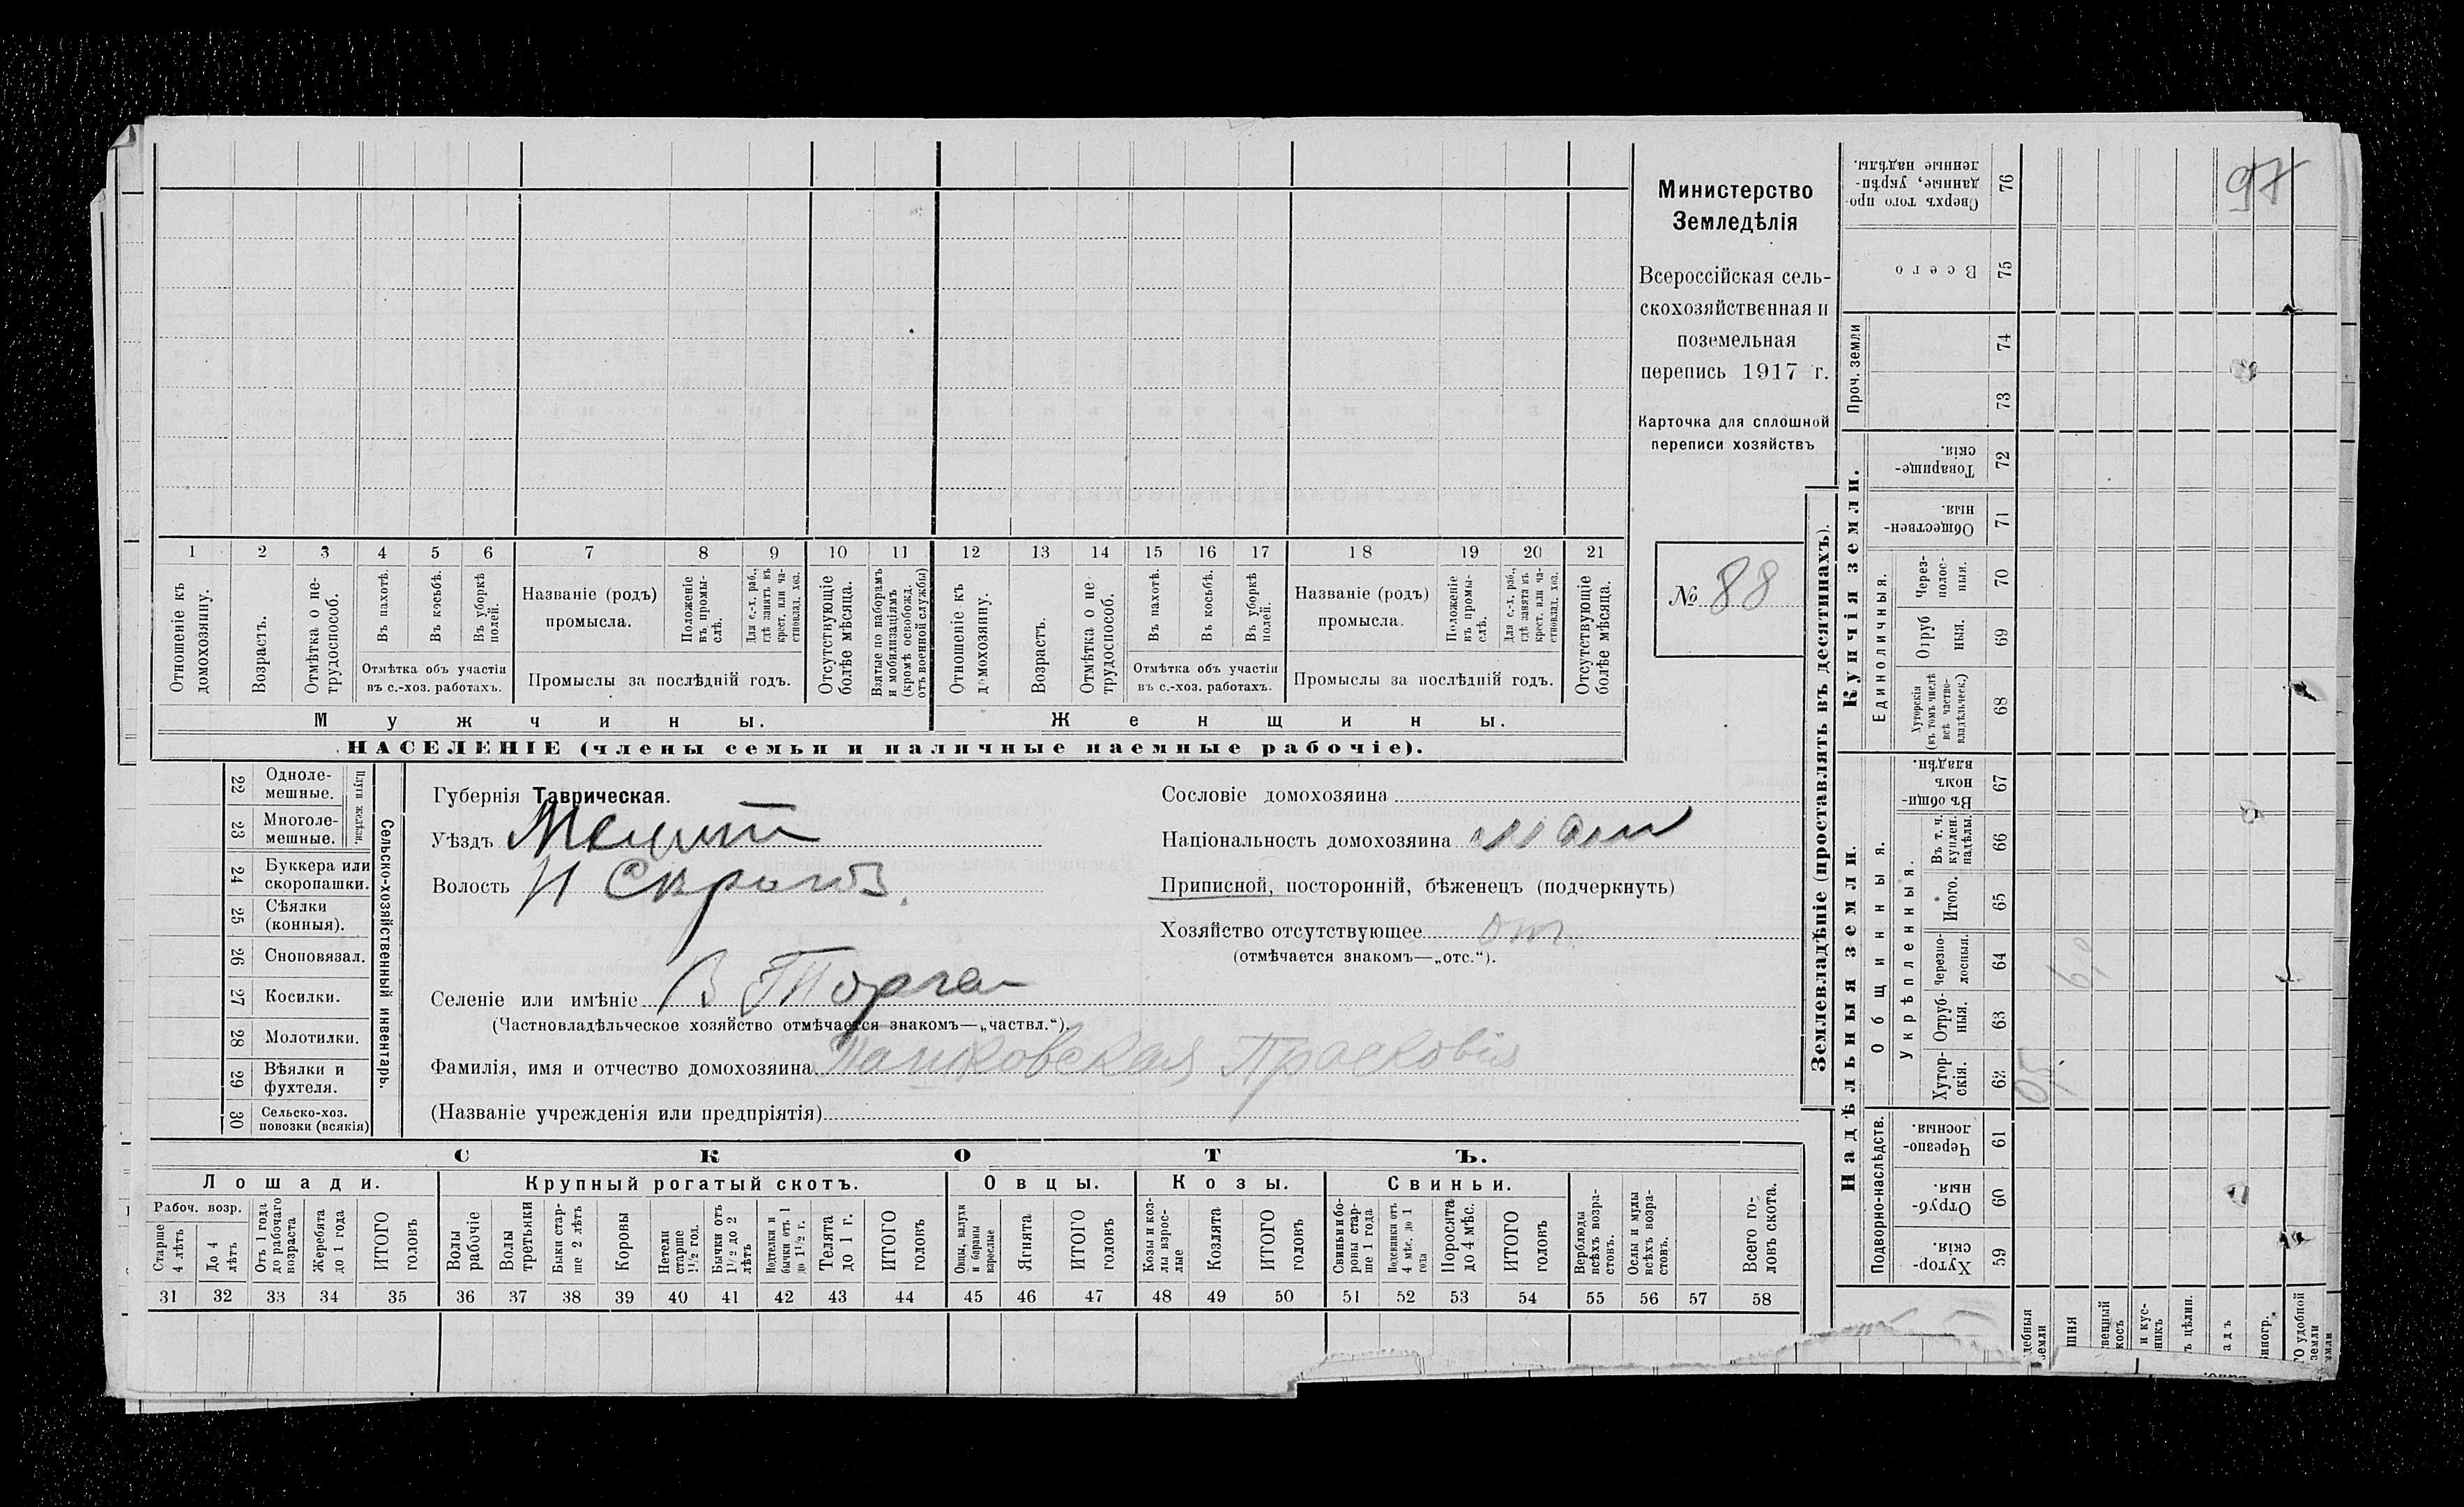 Министерство
Земледѣлія
Всероссійская сель-
скохозяйственная и
поземельная
перепись 1917 г.
Карточка для сплошной
переписи хозяйствъ
№ 88
97
1 2 3 4 5 6 7 8 9 10 11 12 13 14 15 16 17 18 19 20 21
Отношеніе къ домохозяину.
Возрастъ.
Отмѣтка о не-трудоспособ.
Въ пахотѣ.
Въ косьбѣ.
Въ уборкѣ полей.
Отмѣтка объ участіи
въ с.-хоз. работахъ.
Названіе (родъ)
промысла.
Положеніе въ промы-слѣ.
Для с.-х. раб., гдѣ занятъ въ крест. или ча-стновлад. хоз.
Промыслы за послѣдній годъ.
Отсутствующіе болѣе мѣсяца.
Взятые по наборамъ и мобилизаціямъ (кромѣ освобожд. отъ военной службы)
Отношеніе къ домохозяину.
Возрастъ.
Отмѣтка о не-трудоспособ.
Въ пахотѣ.
Въ косьбѣ.
Въ уборкѣ полей.
Отмѣтка объ участіи
въ с.-хоз. работахъ.
Названіе (родъ)
промысла.
Положеніе въ промы-слѣ.
Для с.-х. раб., гдѣ занята въ крест. или ча-стновлад. хоз.
Промыслы за послѣдній годъ.
Отсутствующіе болѣе мѣсяца.
Мужчины. Женщины.
НАСЕЛЕНІЕ (члены семьи и наличные наемные рабочіе).
22 Одноле-
мешные.
23 Многоле-
мешные.
Плуги желѣзн.
24 Буккера или
скоропашки.
25 Сѣялки
(конныя).
26 Сноповязал.
27 Косилки.
28 Молотилки.
29 Вѣялки и
фухтеля.
30 Сельско-хоз.
повозки (всякія)
Сельско-хозяйственный инвентарь.
Губернія Таврическая.
Уѣздъ Мелит
Волость Н Сѣрогоз.
Селеніе или имѣніе В Торгаи
(Частновладѣльческое хозяйство отмѣчается знакомъ—„частвл.“).
Фамилія, имя и отчество домохозяина Пашковская Прасковія
(Названіе учрежденія или предпріятія)
Сословіе домохозяина
Національность домохозяина мал
Приписной, посторонній, бѣженецъ (подчеркнуть)
Хозяйство отсутствующее отс.
(отмѣчается знакомъ—„отс.“).
СКОТЪ.
Лошади. Крупный рогатый скотъ. Овцы. Козы. Свиньи.
Рабоч. возр.
Старше 4 лѣтъ
До 4 лѣтъ
Отъ 1 года до рабочаго возраста
Жеребята до 1 года
ИТОГО головъ
Волы рабочіе
Волы третьяки
Быки стар-ше 2 лѣтъ
Коровы
Нетели старше 1½ год.
Бычки отъ 1½ до 2 лѣтъ
Подтелки и бычки отъ 1 до 1½ г.
Телята до 1 г.
ИТОГО головъ
Овцы, валухи и бараны взрослые
Ягнята
ИТОГО головъ
Козы и коз-лы взрос-лые
Козлята
ИТОГО головъ
Свиньи и бо-ровы стар-ше 1 года
Подсвинки отъ 4 мѣс. до 1 года
Поросята до 4 мѣс.
ИТОГО головъ
Верблюды всѣхъ возра-стовъ.
Ослы и мулы всѣхъ возра-стовъ.
Всего го-ловъ скота.
31 32 33 34 35 36 37 38 39 40 41 42 43 44 45 46 47 48 49 50 51 52 53 54 55 56 57 58
Землевладѣніе (проставлять въ десятинахъ).
Купчія земли.
Надѣльныя земли.
Сверхъ того про-данные, укрѣп-ленные надѣлы. 76
Всего 75
Проч. земли 74 73
Товарище-скія. 72
Обществен-ныя. 71
Единоличныя.
Через-полос-ныя. 70
Отруб-ныя. 69
Хуторскія (въ томъ числѣ всѣ частно-владѣльческ.) 68
Общинныя.
Въ общи-номъ владѣн. 67
Укрѣпленныя.
Въ т. ч. куплен. надѣлы. 66
Итого. 65
Черезпо-лосныя. 64
Отруб-ныя. 63
Хутор-скія. 62
Подворно-наслѣдств.
Черезпо-лосныя. 61
Отруб-ныя. 60
Хутор-скія. 59